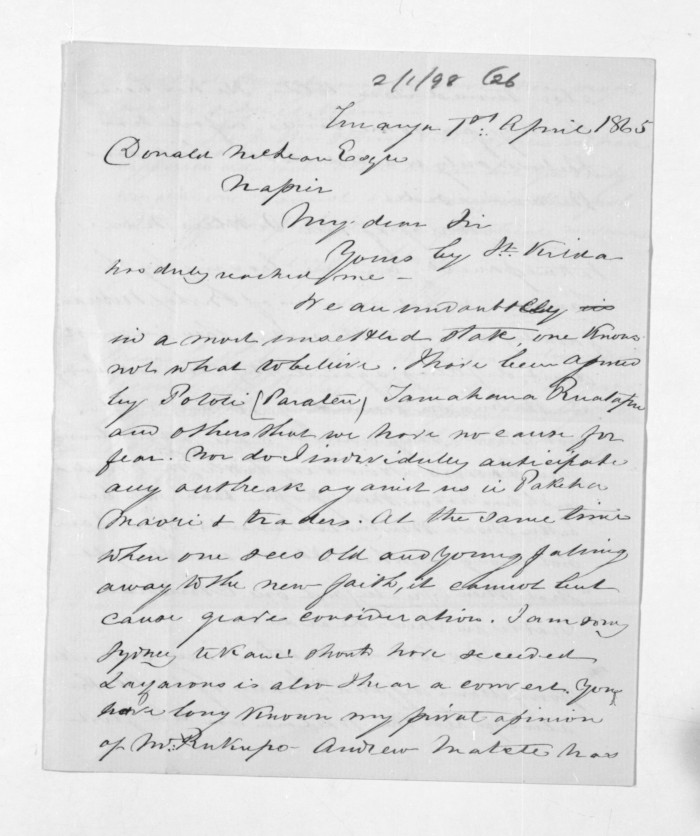 2/1/98 (26
Turanga 1st. April 1865
Donald McLean Esqre
Napier
My dear Sir
Yours by St. Kilda
has duly reached me -
We are undoubtedly is
in a most unsettled state, one knows
not what to believe. I have been assured
by Pototi (Paraten) Tamahana Ruatapu
and others that we have no cause for
fear. Nor do I individully anticipate
any outbreak against us ie Pakeha
Maori & traders. At the same time
when one sees old and young falling
away to the new faith, it cannot but
cause grave consideration. I am sorry
Sydney te Kawe should have seceeded
Lazarous is also I hear a convert. You
have long known my private opinion
of Mr. Rukupo - Andrew Matete has